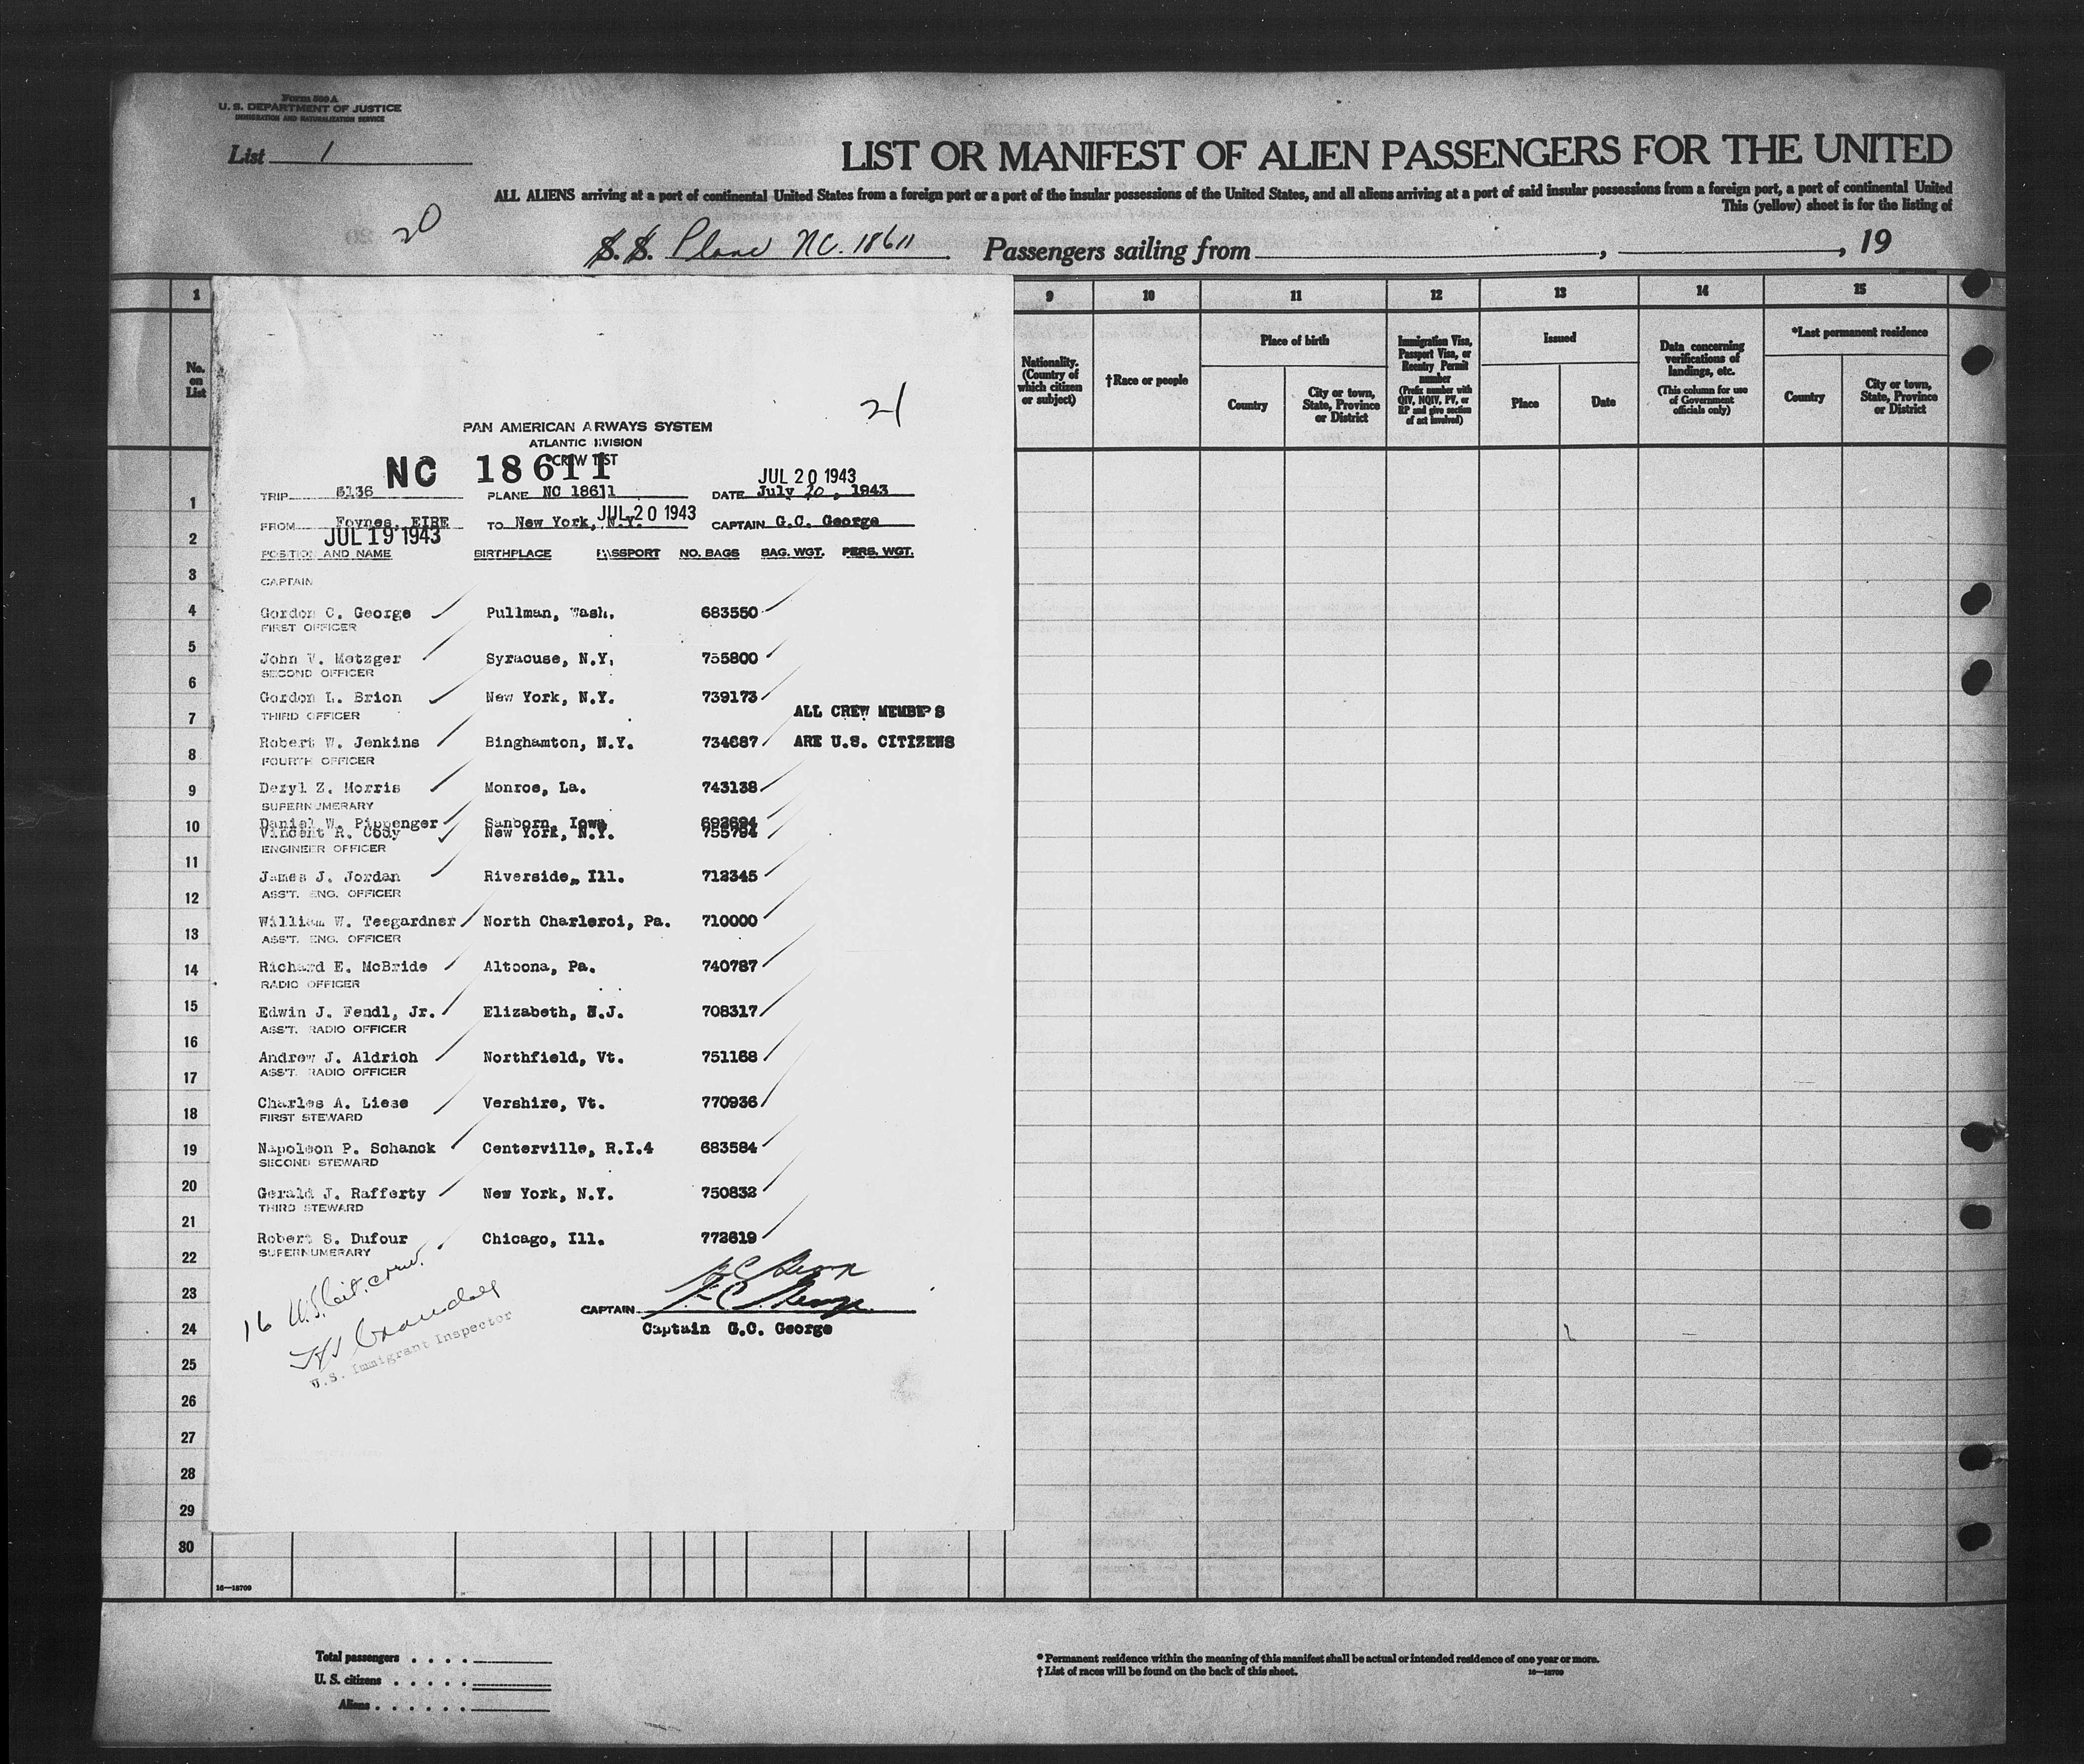 Form 500 A
U. S. DEPARTMENT OF JUSTICE
IMMIGRATION AND NATURALIZATION SERVICE
List 1
LIST OR MANIFEST OF ALIEN PASSENGERS FOR THE UNITED
ALL ALIENS arriving at a port of continental United States from a foreign port or a port of the insular possessions of the United States, and all aliens arriving at a port of said insular possessions from a foreign port, a port of continental United
This (yellow) sheet is for the listing of
20
S.S. Plane NC. 18611 Passengers sailing from , , 19
1 9 10 11 12 13 14 15
No. on List
Nationality. (Country of which citizen or subject)
†Race or people
Place of birth
Country
City or town, State, Province or District
Immigration Visa, Passport Visa, or Reentry Permit number
(Prefix number with QIV, NQIV, PV, or RP and give section of act involved)
Issued
Place
Date
Data concerning verifications of landings, etc.
(This column for use of Government officials only)
*Last permanent residence
Country
City or town, State, Province or District
21
PAN AMERICAN A RWAYS SYSTEM
ATLANTIC DIVISION
CREW LIST
NC 18611
JUL 20 1943
TRIP 5136 PLANE NC 18611 DATE July 20, 1943
FROM Foynes, EIRE TO New York, N.Y. CAPTAIN G.C. George
JUL 20 1943
JUL 19 1943
POSITION AND NAME BIRTHPLACE PASSPORT NO. BAGS BAG. WGT. PERS. WGT.
CAPTAIN
Gordon C. George Pullman, Wash. 683550
FIRST OFFICER
John V. Metzger Syracuse, N.Y. 755800
SECOND OFFICER
Gordon L. Brion New York, N.Y. 739173
THIRD OFFICER
ALL CREW MEMBE S
Robert W. Jenkins Binghamton, N.Y. 734687 ARE U.S. CITIZENS
FOURTH OFFICER
Deryl Z. Morris Monroe, La. 743138
SUPERNUMERARY
Daniel W. Pippenger Sanborn, Iowa
Vincent R. Cody New York, N.Y. 755784
ENGINEER OFFICER
James J. Jordan Riverside, Ill. 712345
ASS'T. ENG. OFFICER
William W. Teegardner North Charleroi, Pa. 710000
ASS'T. ENG. OFFICER
Richard E. McBride Altoona, Pa. 740787
RADIO OFFICER
Edwin J. Fendl, Jr. Elizabeth, N.J. 708317
ASS'T. RADIO OFFICER
Andrew J. Aldrich Northfield, Vt. 751168
ASS'T. RADIO OFFICER
Charles A. Liese Vershire, Vt. 770936
FIRST STEWARD
Napoleon P. Schanck Centerville, R.I.4 683584
SECOND STEWARD
Gerald J. Rafferty New York, N.Y. 750832
THIRD STEWARD
Robert S. Dufour Chicago, Ill. 772619
SUPERNUMERARY
16 U.S. cit. crew.
U.S. Immigrant Inspector
CAPTAIN G C George
Captain G.C. George
1
2
3
4
5
6
7
8
9
10
11
12
13
14
15
16
17
18
19
20
21
22
23
24
25
26
27
28
29
30
16—18709
Total passengers . . . .
U. S. citizens . . . . .
Aliens . . . . . .
* Permanent residence within the meaning of this manifest shall be actual or intended residence of one year or more.
† List of races will be found on the back of this sheet. 16—18709